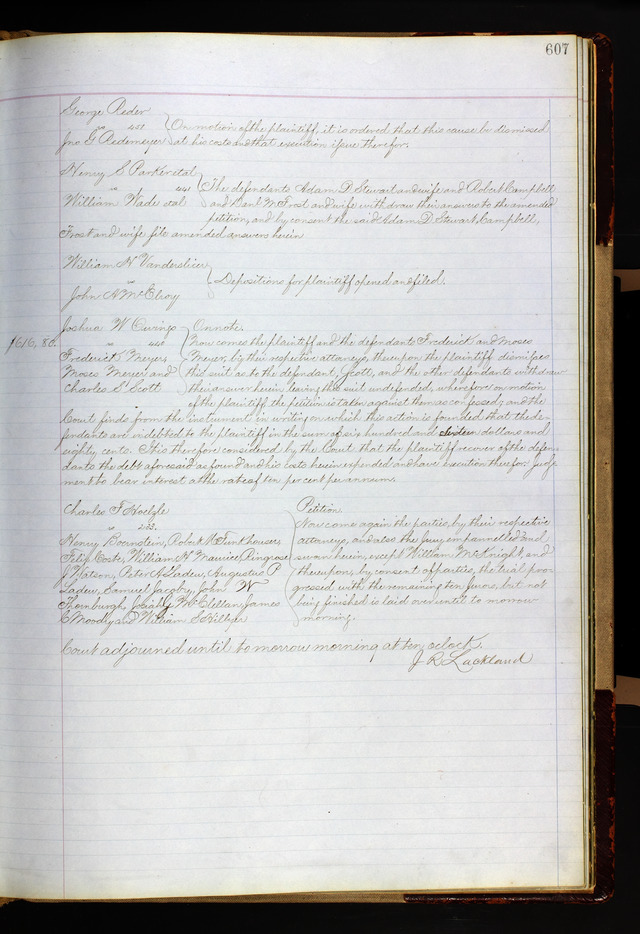 607
George Reder
vs 431 } On motion of the plaintiff, it is ordered that this cause be dismissed
Jno G Redemeyer at his costs and that execution issue therefor.
Henry S. Parker et al
vs 441 } The defendants Adam D Stewart and wife and Robert Campbell
William Wade et al and Danl M Frost and wife withdraw their answers to the amended
petition, and by consent the said Adam D. Stewart, Campbell,
Frost and wife file amended answers herein
William N Vanderslice
vs } Depositions for plaintiff opened and filed.
John A McElroy
Joshua W Owings On note.
$616, 80. vs 450 Now comes the plaintiff and the defendants Frederick and Moses
Frederick Meyer, Meyer, by their respective attorneys, thereupon the plaintiff dismisses
Moses Meyer and this suit as to the defendant, Scott, and the other defendants withdraw
Charles S Scott their answer herein, leaving the suit undefended, wherefore on motion
of the plaintiff the petition is taken against them as confessed; and the
Court finds from the instrument in writing on which this action is founded that the de-
fendants are indebted to the plaintiff in the sum of six hundred and sixteen dollars and
eighty cents. It is therefore considered by the Court that the plaintiff recover of the defen-
dants the debt aforesaid as found and his costs herein expended and have execution therefor Judg-
ment to bear interest at the rate of ten per cent per annum.
Charles F Hoelzle Petition
vs 253. Now come again the parties, by their respective
Henry Boernstein, Robert M Funkhouser attorneys, and also the jury empannelled and
Filip Coste, William H Maurice, Ringrose sworn herein, except William McKnight, and
J Watson, Peter A Ladew, Augustus P thereupon, by consent of parties, the trial pro-
Ladew, Samuel Jacoby, John W gressed with the remaining ten jurors, but not
Thornburgh, Josiah McClellan, James being finished is laid over until to morrow
C Moodly and William S Hillyer morning.
Court adjourned until to morrow morning at ten oclock.
J R Lackland